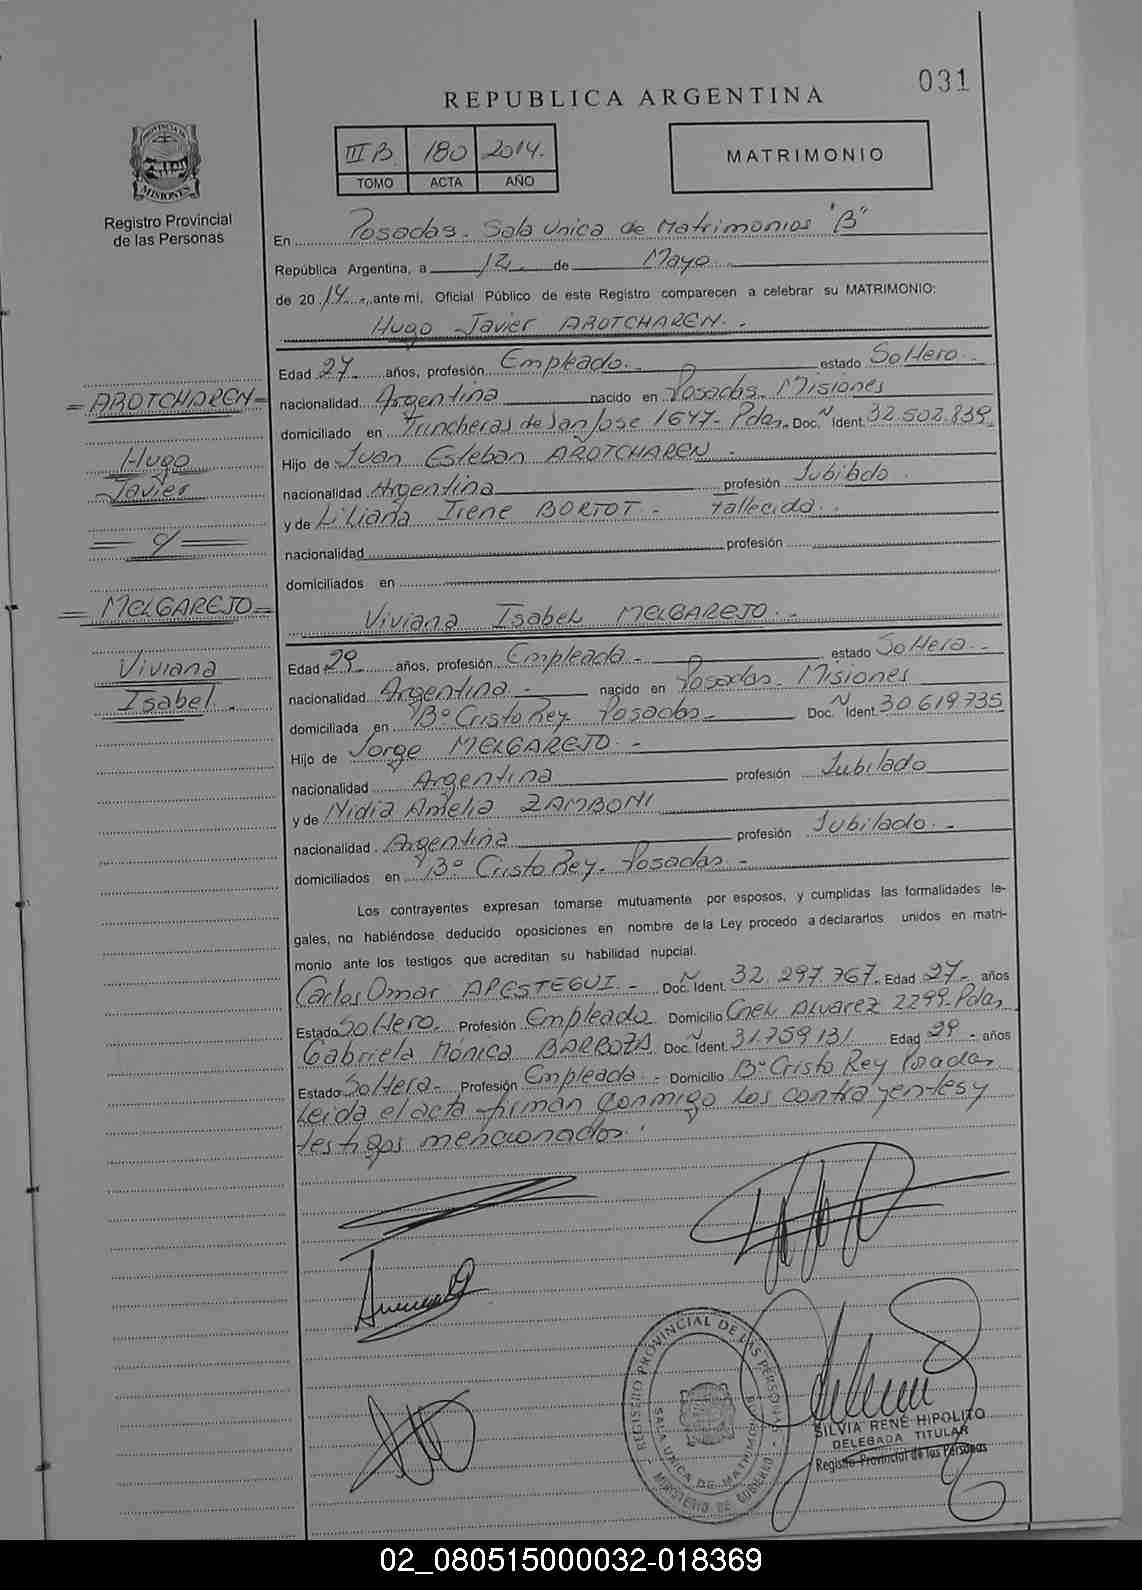 031
REPUBLICA ARGENTINA
III B. 180 2014.
TOMO ACTA AÑO
MATRIMONIO
PROVINCIA DE MISIONES
Registro Provincial
de las Personas
En Posadas. Sala Unica de Matrimonios "B"
República Argentina, a 12 de Mayo
de 2014, ante mi, Oficial Público de este Registro comparecen a celebrar su MATRIMONIO:
Hugo Javier AROTCHAREN.-
Edad 27 años, profesión Empleado. estado Soltero.-
nacionalidad Argentina nacido en Posadas Misiones
domiciliado en Trincheras de San Jose 1647- Pdas. Doc. N Ident. 32.502.839
Hijo de Juan Esteban AROTCHAREN.
nacionalidad Argentina profesión Jubilado.
y de Liliana Irene BORTOT.- fallecida.
nacionalidad profesión
domiciliados en
Viviana Isabel MELGAREJO.-
Edad 29 años, profesión Empleada.- estado Soltera.-
nacionalidad Argentina.- nacido en Posadas. Misiones
domiciliada en Bº Cristo Rey Posadas- Doc. N Ident. 30.619.735
Hijo de Jorge MELGAREJO.-
nacionalidad Argentina profesión Jubilado
y de Nidia Amelia ZAMBONI
nacionalidad Argentina profesión Jubilado.-
domiciliados en Bº Cristo Rey- Posadas-
Los contrayentes expresan tomarse mutuamente por esposos, y cumplidas las formalidades le-
gales, no habiéndose deducido oposiciones en nombre de la Ley procedo a declararlos unidos en matri-
monio ante los testigos que acreditan su habilidad nupcial.
Carlos Omar APESTEGUI.- Doc. N Ident. 32.297.767. Edad 27- años
Estado Soltero. Profesión Empleado Domicilio Cnel Alvarez 2299-Pdas
Gabriela Mónica BARBOZA Doc. N Ident. 31.759.131 Edad 29- años
Estado Soltera- Profesión Empleada.- Domicilio Bº Cristo Rey Posadas
Leida el acta firman conmigo los contrayentes y
testigos mencionados.
=AROTCHAREN=
Hugo
Javier
= c/ =
=MELGAREJO=
Viviana
Isabel.
REGISTRO PROVINCIAL DE LAS PERSONAS - MINISTERIO DE GOBIERNO -
SALA UNICA DE MATRIMONIOS
SILVIA RENÉ HIPOLITO
DELEGADA TITULAR
Registro Provincial de las Personas
02_080515000032-018369